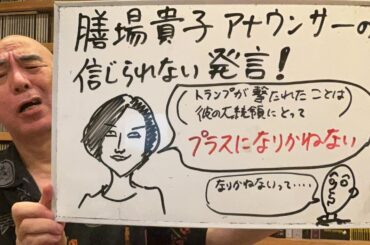 膳場貴子アナウンサーの
信じられない発言!
トランプが撃たれたことは
彼の大統領にとって
プラスになりかねない
なりかねないって・・・・